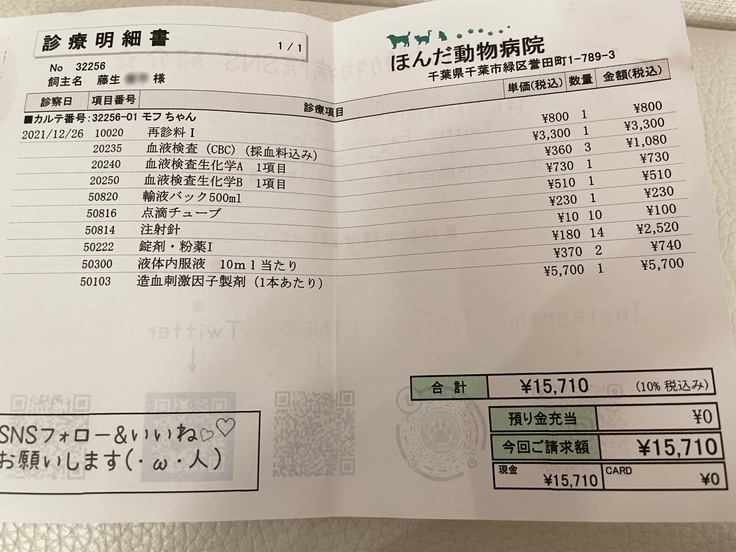 診療明細書
1 / 1
ほんだ動物病院
千葉県千葉市緑区誉田町1-789-3
No 32256
飼主名 藤生 様
診察日 項目番号 診療項目 単価(税込) 数量 金額(税込)
■カルテ番号:32256-01 モフちゃん
2021/12/26 10020 再診料Ⅰ ¥800 1 ¥800
20235 血液検査（CBC）(採血料込み) ¥3,300 1 ¥3,300
20240 血液検査生化学A 1項目 ¥360 3 ¥1,080
20250 血液検査生化学B 1項目 ¥730 1 ¥730
50820 輸液バック500ml ¥510 1 ¥510
50816 点滴チューブ ¥230 1 ¥230
50814 注射針 ¥10 10 ¥100
50222 錠剤・粉薬Ⅰ ¥180 14 ¥2,520
50300 液体内服液 10ml当たり ¥370 2 ¥740
50103 造血刺激因子製剤（1本あたり） ¥5,700 1 ¥5,700
合計 ¥15,710 (10%税込み)
預り金充当 ¥0
今回ご請求額 ¥15,710
現金 ¥15,710 CARD ¥0
SNSフォロー&いいね♡♡
お願いします(・ω・人)